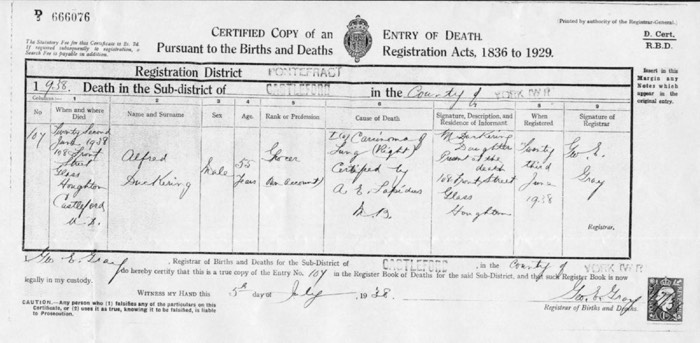 D 666076
Printed by authority of the Registrar-General.
CERTIFIED COPY of an ENTRY OF DEATH.
D. Cert.
R.B.D.
The Statutory Fee for this Certificate is 2s. 7d.
If required subsequently to registration, a
Search Fee is payable in addition.
Pursuant to the Births and Deaths Registration Acts, 1836 to 1929.
Insert in this
Margin any
Notes which
appear in the
original entry.
Registration District PONTEFRACT
1938. Death in the Sub-district of CASTLEFORD in the County of YORK W.R
Columns:— 1 2 3 4 5 6 7 8 9
No. When and where Died Name and Surname Sex Age Rank or Profession Cause of Death Signature, Description, and Residence of Informant When Registered Signature of Registrar
107
Twenty second
June 1938
108 Front
Street
Glass
Houghton
Castleford
U.D.
Alfred
Duckering
Male
55
Years
Grocer
(own account)
I (a) Carcinoma of
Lung (Right)
Certified by
A. E. Lapidus
M.B.
M. Duckering
Daughter
Present at the
death
108 Front Street
Glass
Houghton
Twenty
third
June
1938
Geo. E.
Gray
Registrar.
I, Geo. E. Gray, Registrar of Births and Deaths for the Sub-District of CASTLEFORD, in the County of YORK W.R
do hereby certify that this is a true copy of the Entry No. 107 in the Register Book of Deaths for the said Sub-District, and that such Register Book is now
legally in my custody.
WITNESS MY HAND this 5th day of July, 1938.
Geo. E. Gray
Registrar of Births and Deaths.
CAUTION.—Any person who (1) falsifies any of the particulars on this
Certificate, or (2) uses it as true, knowing it to be falsified, is liable
to Prosecution.